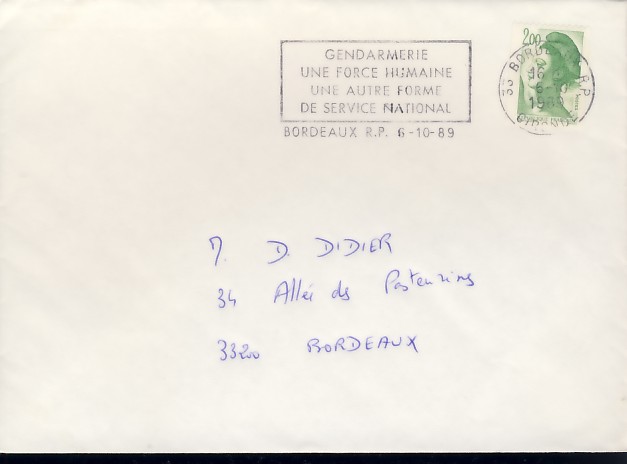 GENDARMERIE
UNE FORCE HUMAINE
UNE AUTRE FORME
DE SERVICE NATIONAL
BORDEAUX R.P. 6-10-89
2,00
33 BORDEAUX R.P
16
6-10
GIRONDE
M. D. DIDIER
34 Allée des
33200 BORDEAUX